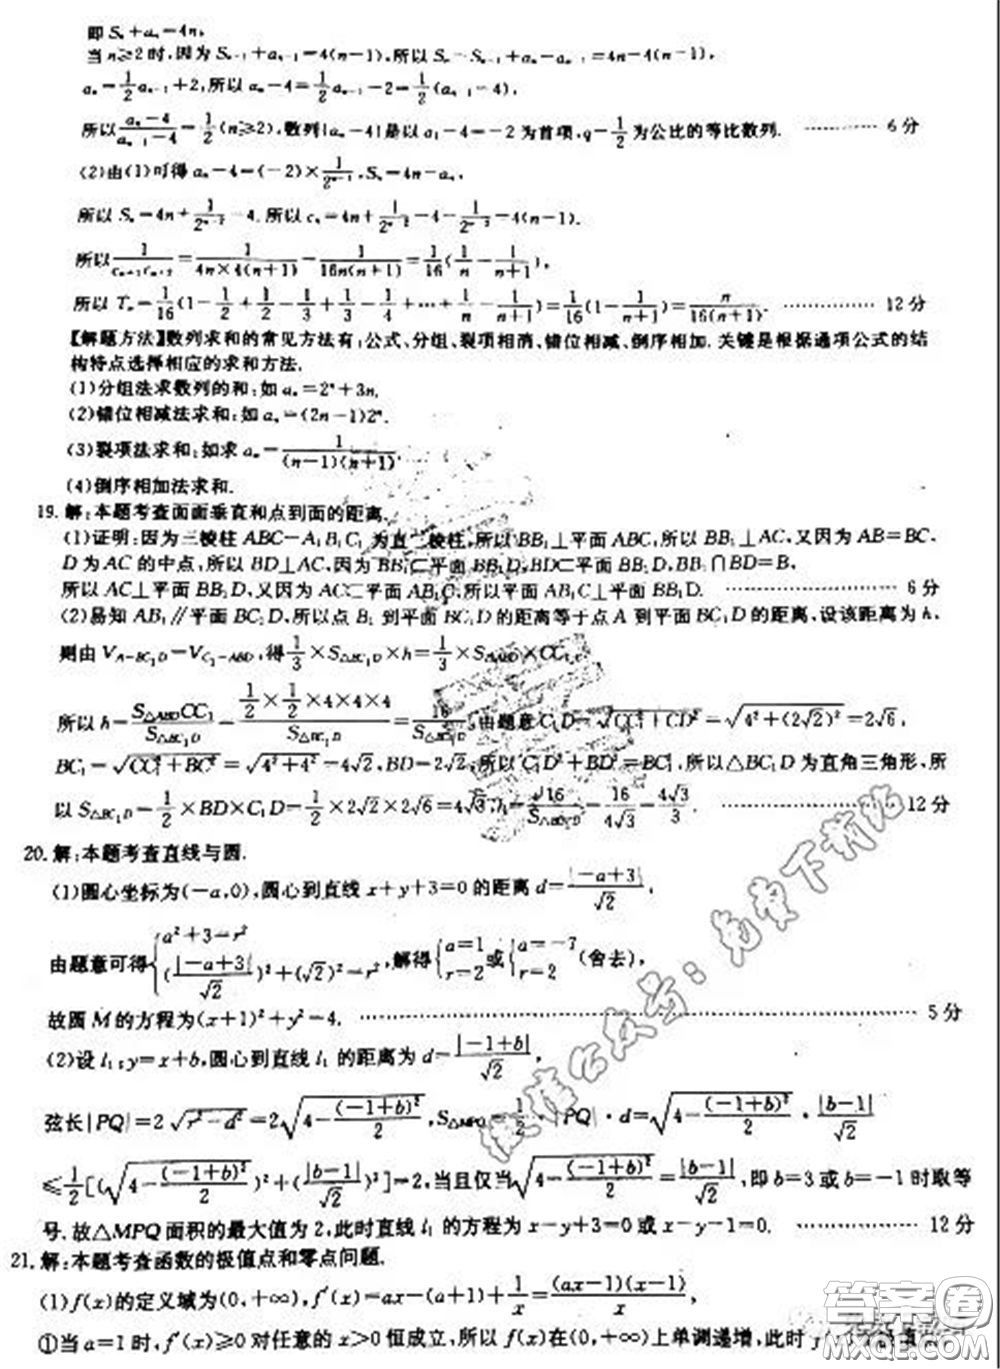 即 Sₙ+aₙ=4n,
当 n≥2 时,因为 Sₙ₋₁+aₙ₋₁=4(n-1),所以 Sₙ-Sₙ₋₁+aₙ-aₙ₋₁=4n-4(n-1),
aₙ=1/2 aₙ₋₁+2,所以 aₙ-4=1/2 aₙ₋₁-2=1/2(aₙ₋₁-4),
所以 (aₙ-4)/(aₙ₋₁-4)=1/2(n≥2),数列{aₙ-4}是以 a₁-4=-2 为首项,q=1/2 为公比的等比数列. ………… 6 分
(2)由(1)可得 aₙ-4=(-2)×1/2ⁿ⁻¹,Sₙ=4n-aₙ,
所以 Sₙ=4n+1/2ⁿ⁻²-4.所以 cₙ=4n+1/2ⁿ⁻²-4-1/2ⁿ⁻²=4(n-1).
所以 1/(cₙ₊₁cₙ₊₂)=1/(4n×4(n+1))=1/(16n(n+1))=1/16(1/n-1/(n+1)),
所以 Tₙ=1/16(1-1/2+1/2-1/3+1/3-1/4+…+1/n-1/(n+1))=1/16(1-1/(n+1))=n/(16(n+1)). ………… 12 分
【解题方法】数列求和的常见方法有:公式、分组、裂项相消、错位相减、倒序相加.关键是根据通项公式的结
构特点选择相应的求和方法.
(1)分组法求数列的和:如 aₙ=2ⁿ+3n.
(2)错位相减法求和:如 aₙ=(2n-1)2ⁿ.
(3)裂项法求和:如求 aₙ=1/((n-1)(n+1)).
(4)倒序相加法求和.
19.解:本题考查面面垂直和点到面的距离.
(1)证明:因为三棱柱 ABC-A₁B₁C₁ 为直三棱柱,所以 BB₁⊥平面 ABC,所以 BB₁⊥AC,又因为 AB=BC,
D 为 AC 的中点,所以 BD⊥AC,因为 BB₁⊂平面 BB₁D,BD⊂平面 BB₁D,BB₁∩BD=B,
所以 AC⊥平面 BB₁D,又因为 AC⊂平面 AB₁C,所以平面 AB₁C⊥平面 BB₁D. ………… 6 分
(2)易知 AB₁∥平面 BC₁D,所以点 B₁ 到平面 BC₁D 的距离等于点 A 到平面 BC₁D 的距离,设该距离为 h,
则由 V_{A-BC₁D}=V_{C₁-ABD},得 1/3×S△BC₁D×h=1/3×S△ABD×CC₁,
所以 h=S△ABD·CC₁/S△BC₁D=(1/2×1/2×4×4×4)/S△BC₁D=16/S△BC₁D,由题意 C₁D=√(CC₁²+CD²)=√(4²+(2√2)²)=2√6,
BC₁=√(CC₁²+BC²)=√(4²+4²)=4√2,BD=2√2,所以 C₁D²+BD²=BC₁²,所以△BC₁D 为直角三角形,所
以 S△BC₁D=1/2×BD×C₁D=1/2×2√2×2√6=4√3,h=16/S△BC₁D=16/(4√3)=4√3/3. ………… 12 分
20.解:本题考查直线与圆.
(1)圆心坐标为(-a,0),圆心到直线 x+y+3=0 的距离 d=|-a+3|/√2,
由题意可得{a²+3=r² (|-a+3|/√2)²+(√2)²=r²,解得{a=1 r=2 或{a=-7 r=2 (舍去),
故圆 M 的方程为(x+1)²+y²=4. ………… 5 分
(2)设 l₁:y=x+b,圆心到直线 l₁ 的距离为 d=|-1+b|/√2,
弦长|PQ|=2√(r²-d²)=2√(4-(-1+b)²/2),S△MPQ=1/2·|PQ|·d=√(4-(-1+b)²/2)·|b-1|/√2
≤1/2[(√(4-(-1+b)²/2))²+(|b-1|/√2)²]=2,当且仅当√(4-(-1+b)²/2)=|b-1|/√2,即 b=3 或 b=-1 时取等
号.故△MPQ 面积的最大值为 2,此时直线 l₁ 的方程为 x-y+3=0 或 x-y-1=0. ………… 12 分
21.解:本题考查函数的极值点和零点问题.
(1)f(x)的定义域为(0,+∞),f′(x)=ax-(a+1)+1/x=(ax-1)(x-1)/x,
①当 a=1 时,f′(x)≥0 对任意的 x>0 恒成立,所以 f(x)在(0,+∞)上单调递增,此时
微信公众号:免费下载站
答案圈
MXQE.COM